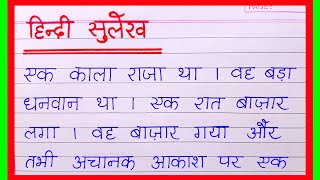 हिन्दी सुलेख
एक काला राजा था । वह बड़ा
धनवान था । एक रात बाज़ार
लगा । वह बाज़ार गया और
तभी अचानक आकाश पर एक